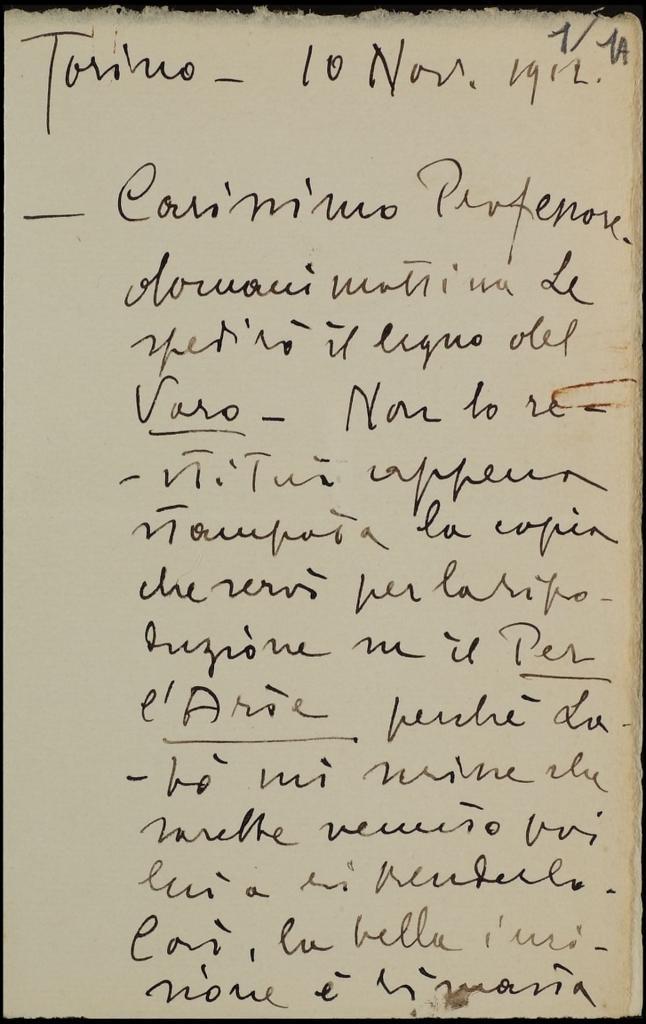 1/1A
Torino - 10 Nov. 1912.
- Carissimo Professore.
domani mattina Le
spedirò il legno del
Vaso - Non lo re-
-stituii appena
stampata la copia
che servì per la ripo-
duzione su il Per
l'Arte perché
-pò mi scrisse che
sarebbe venuto poi
lui a riprenderlo.
Così, la bella inci-
sione è rimasta